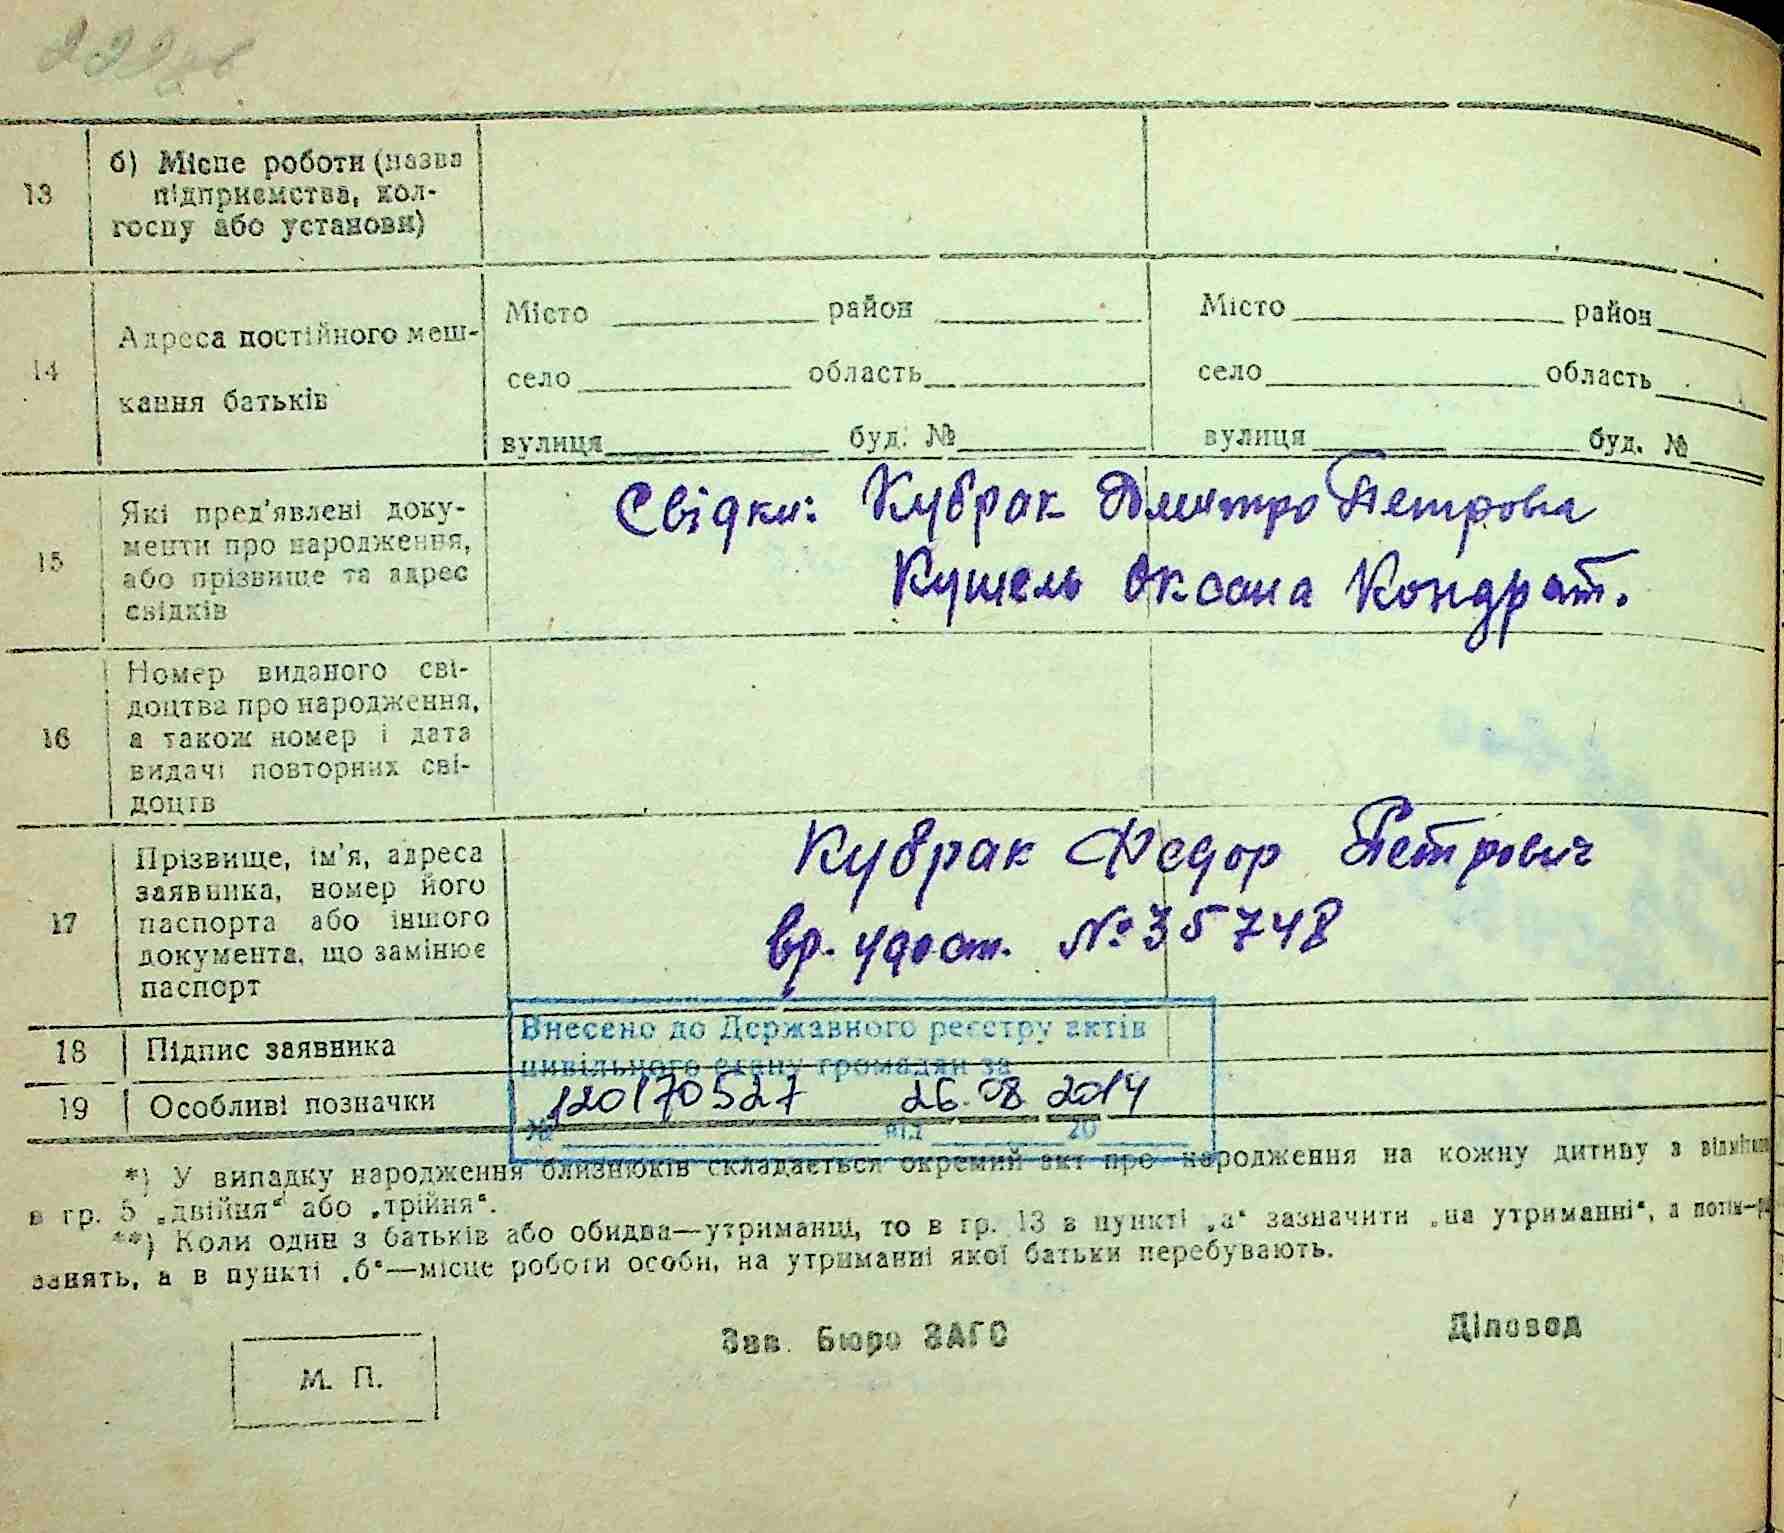 13
б) Місце роботи (назва
підприємства, кол-
госпу або установи)
14
Адреса постійного меш-
кання батьків
Місто район
село область
вулиця буд. №
Місто район
село область
вулиця буд. №
15
Які пред'явлені доку-
менти про народження,
або прізвище та адрес
свідків
Свідки: Кубрак Дмитро Петрова
Кушель Оксана Кондрат.
16
Номер виданого сві-
доцтва про народження,
а також номер і дата
видачі повторних сві-
доцтв
17
Прізвище, ім'я, адреса
заявника, номер його
паспорта або іншого
документа, що замінює
паспорт
Кубрак Федор Петрович
вр. удост. № 35748
18 Підпис заявника
19 Особливі позначки
Внесено до Державного реєстру актів
цивільного стану громадян за
№ 120170527 від 26.08 2014
*) У випадку народження близнюків складається окремий акт про народження на кожну дитину з
в гр. 5 „двійня“ або „трійня“.
**) Коли один з батьків або обидва—утриманці, то в гр. 13 в пункті „а“ зазначити „на утриманні“, а потім—
занять, а в пункті „б“—місце роботи особи, на утриманні якої батьки перебувають.
Зав. Бюро ЗАГС
Діловод
М. П.